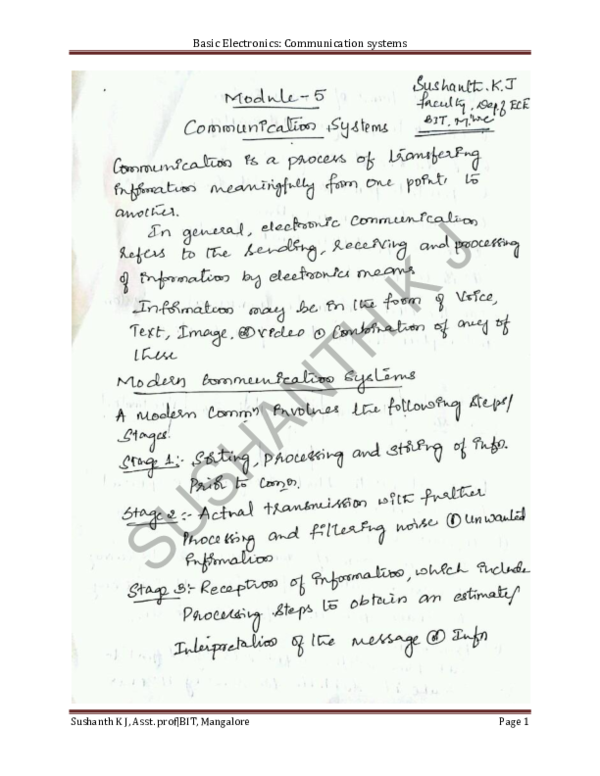 Basic Electronics: Communication systems
Sushanth.K.J
Faculty, Dep of ECE
BIT, M'lore
Module-5
Communication Systems
Communication is a process of transfering
information meaningfully from one point to
another.
In general, electronic communication
refers to the sending, receiving and processing
of information by electronics means
Information may be in the form of Voice,
Text, Image, or video or Combination of any of
these
SUSHANTH K J
Modern Communication Systems
A modern Commn involves the following steps/
Stages.
Stage 1:- Sorting, processing and storing of info.
Prior to Comm.
Stage 2:- Actual transmission with further
Processing and filtering noise or unwanted
Information
Stage 3:- Reception of information, which include
Processing steps to obtain an estimate/
Interpretation of the message or Infn
Sushanth K J, Asst. prof|BIT, Mangalore
Page 1